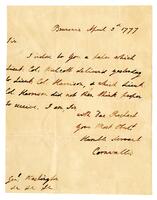 Brunswic April 3d 1777
Sir
I inclose to you a paper which
Lieut. Col. Walcott delivered yesterday
to Lieut. Col. Harrison, & which Lieut.
Col. Harrison did not then think proper
to receive. I am Sir
with due Respect
Your Most Obedt
Humble Servant
Cornwallis
Genl. Washington
&c &c &c